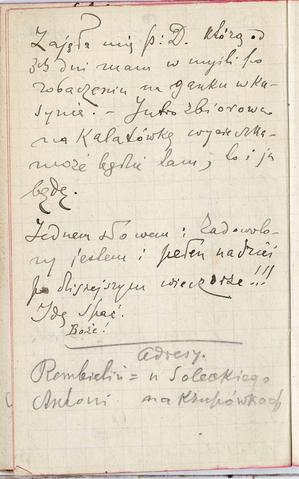 Zajęła mię p: D. którą od
3ch dni mam w myśli po
zobaczeniu na ganku w ka-
synie. - Jutro zbiorowa
na Kalatówkę wycieczka-
może będzie tam, to i ja
będę.
Jednem słowem: Zadowolo-
ny jestem i pełen nadziei
po dzisiejszym wieczorze!!!
Idę spać.
Boże!
Adresy.
Rembieliń = u Soleckiego
Antoni na Krupówkach